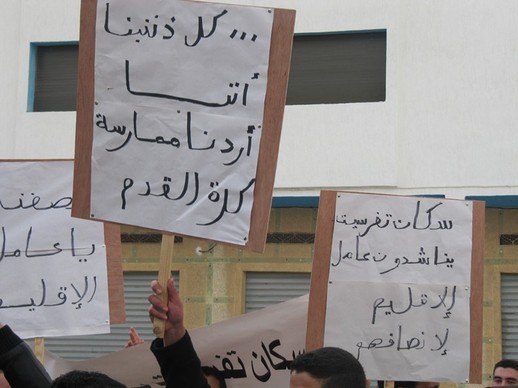 ... كل ذنبنا
أننا
أردنا ممارسة
كرة القدم
سكان تفرسيت
يناشدون عامل
الإقليم
لإنصافهم
يا عامل
الإقليم
سكان